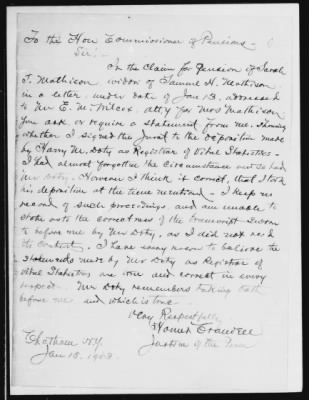 To the Hon Commissioner of Pensions -
Sir! -
In the Claim for Pension of Sarah
T. Mathison widow of Samuel H. Mathison
in a letter under date of Jan 13, addressed
to Mr E. M. Wilcox, atty for Mrs Mathison
you ask or require a statement from me
whether I signed the Jurat to the deposition made
by Harry M. Doty as Registrar of Vital Statistics -
I had almost forgotten the Circumstance and so had
Mr Doty. However I think it correct, that I took
his deposition at the time mentioned - I keep no
record of such proceedings and am unable to
state as to the correctness of the transcript - Sworn
to before me by Mr Doty, as I did not read
its Contents. I have every reason to believe the
Statements made by Mr Doty as Registrar of
Vital Statistics are true and correct in every
respect. Mr Doty remembers taking oath
before me and which is true -
Very Respectfully
Homer Crandell
Justice of the Peace
Chatham N.Y.
Jan 18. 1908.